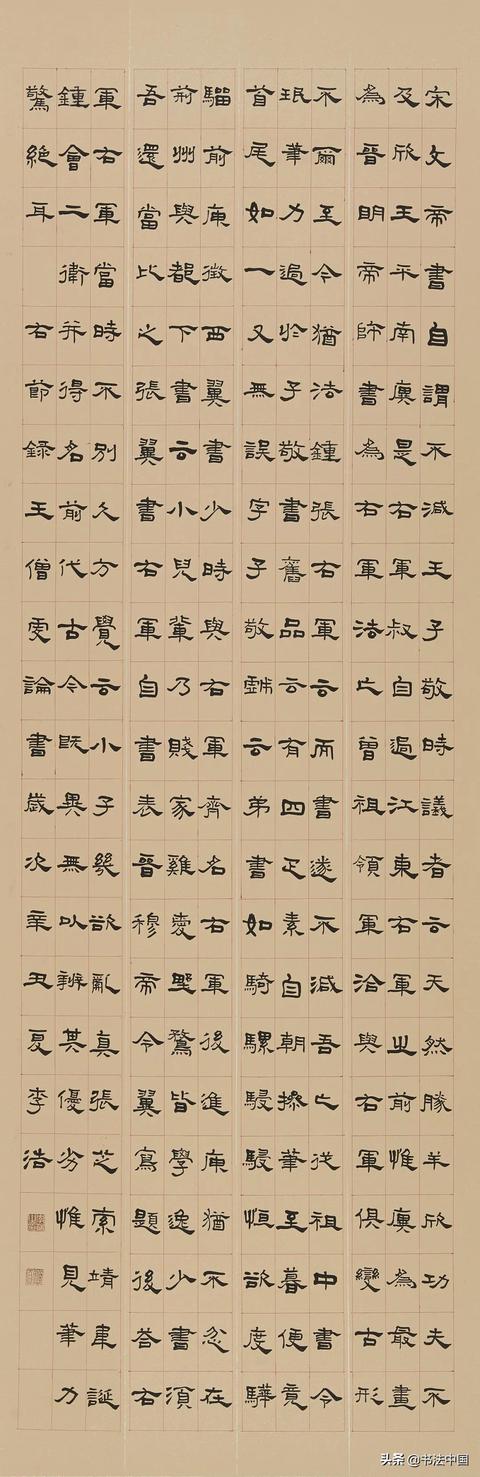 宋文帝書自謂不減王子敬時議者云天然勝羊欣功夫不
及欣王平南廙是右軍叔自過江東右軍之前惟廙為最畫
為晉明帝師書為右軍法亡曾祖領軍洽與右軍俱變古形
不爾至今猶法鍾張右軍云而書遂不減吾亡從祖中書令
珉筆力過於子敬書舊品云有四疋素自朝操筆至暮便竟
首尾如一又無誤字子敬戲云弟書如騎騾駸駸恒欲度驊
騮前庾徵西翼書少時與右軍齊名右軍後進庾猶不忿在
荊州與都下書云小兒輩乃賤家雞愛野鶩皆學逸少書須
吾還當比之張翼書右軍自書表晉穆帝令翼寫題後答右
軍右軍當時不別久方覺云小子幾欲亂真張芝索靖韋誕
鍾會二衛并得名前代古今既異無以辨其優劣惟見筆力
驚絕耳 右節錄王僧虔論書歲次辛丑夏李浩
头条 @书法中国